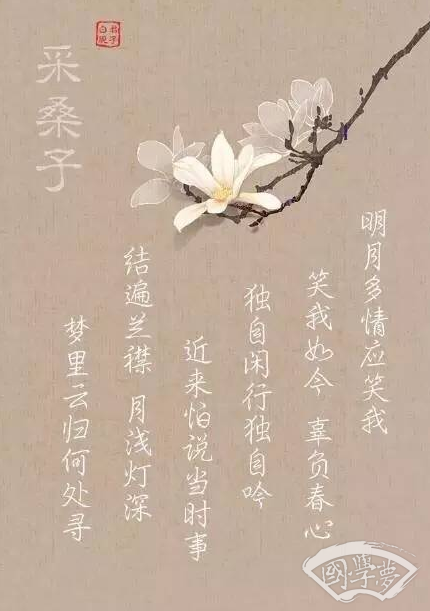 采桑子
明月多情应笑我
笑我如今 辜负春心
独自闲行独自吟
近来怕说当时事
结遍兰襟 月浅灯深
梦里云归何处寻
國學夢